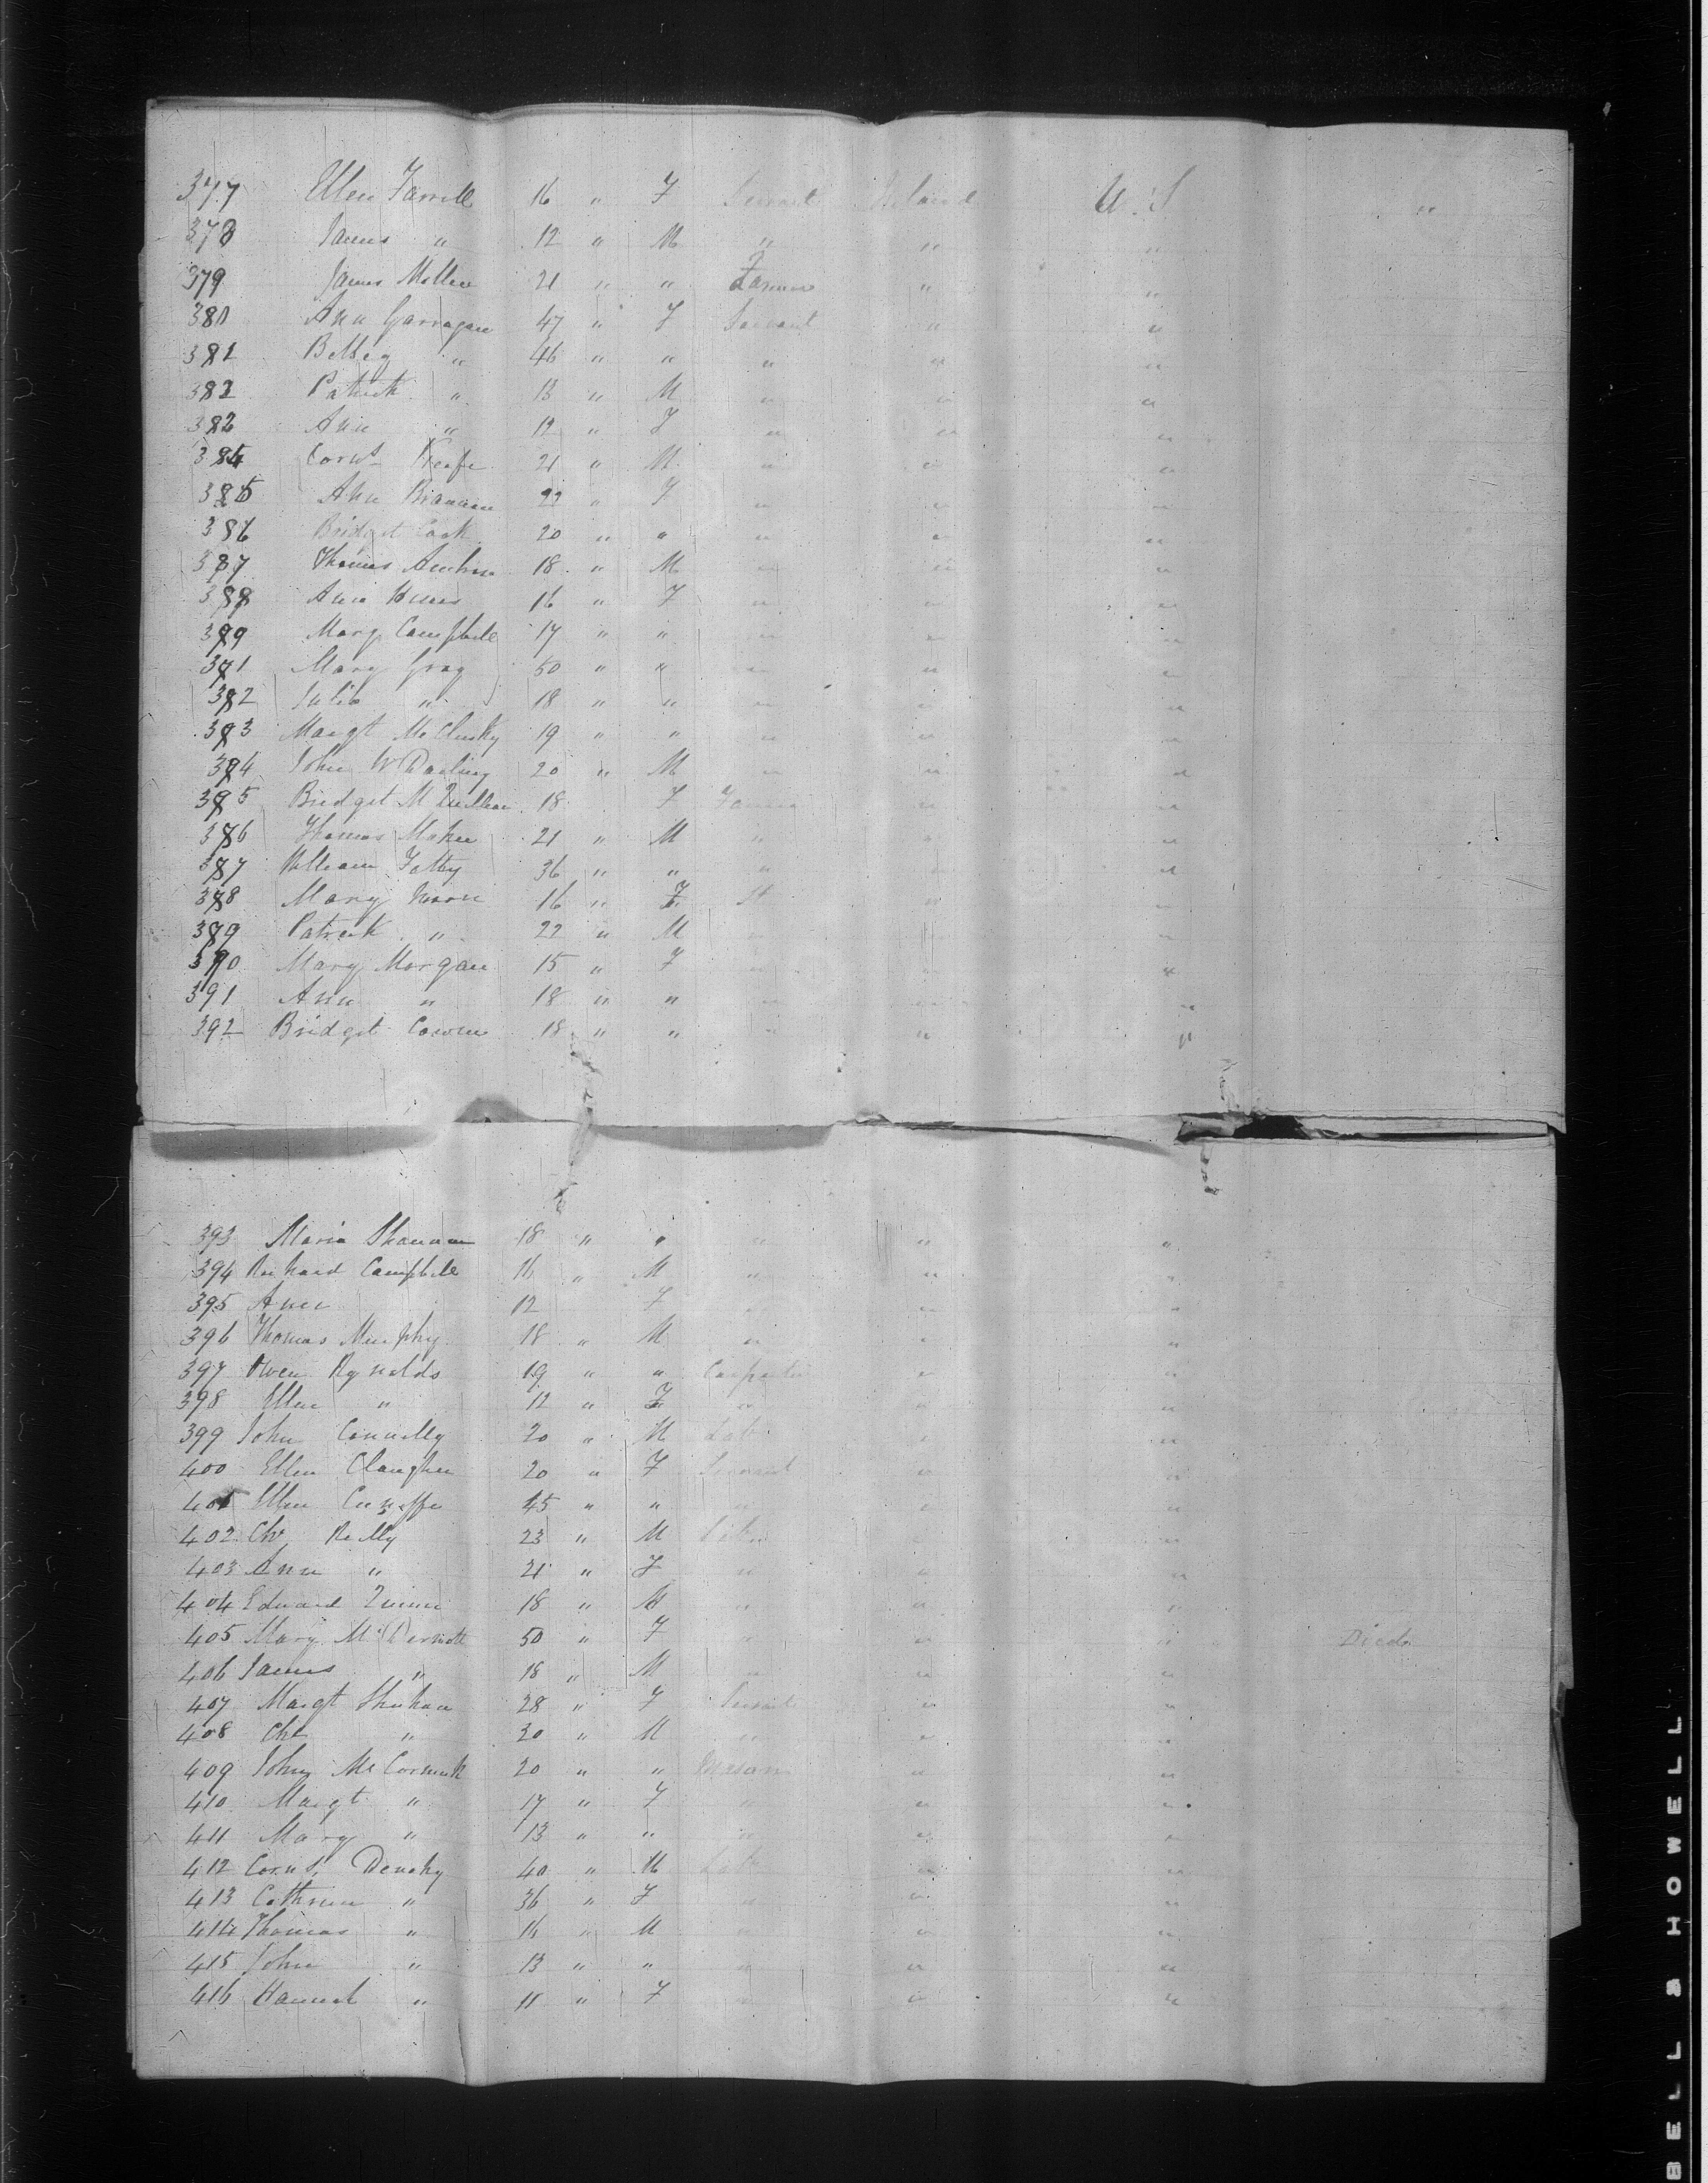 377 Ellen Farrell 16 " F Servant Ireland U.S "
378 James " 12 " M " " "
379 James Mullen 21 " " Farmer " "
380 Ann Garragan 47 " F Servant " "
381 Betsey " 46 " " " " "
382 Patrick " 13 " M " " "
382 Ann " 12 " F " " "
384 Corns Keefe 21 " M " " "
385 Ann Brannan 22 " F " " "
386 Bridget Cook 20 " " " " "
387 Thomas 18 " M " " "
388 Ann 16 " F " " "
389 Mary Campbell 17 " " " " "
381 Mary Gray 50 " " " " "
382 Julia " 18 " " " " "
383 Margt McClusky 19 " " " " "
384 John W Darling 20 " M " " "
385 Bridget 18 F " "
386 Thomas Maher 21 " M " " "
387 William 36 " " " " "
388 Mary 16 " F St " "
389 Patrick " 22 " M " " "
390 Mary Morgan 15 " F " " "
391 Ann " 18 " " " " "
392 Bridget 18 " " " " "
393 Maria Shannon 18 " " " " "
394 Richard Campbell 16 " M " " "
395 Ann 12 F " "
396 Thomas Murphy 18 " M " " "
397 Owen Rynolds 19 " " Carpenter " "
398 Ellen " 12 " F " " "
399 John Connolly 20 " M Labr " "
400 Ellen 20 " F Servant " "
401 Ellen 45 " " " " "
402 Chr Reilly 23 " M Labr " "
403 Ann " 21 " F " " "
404 Edward Quinn 18 " M " " "
405 Mary McDermott 50 " F " " " Died
406 James " 18 " M " " "
407 Margt Shehan 28 " F Servant " "
408 Chr " 30 " M " " "
409 John McCormick 20 " " Mason " "
410 Margt " 17 " F " " "
411 Mary " 13 " " " " "
412 Corns. Denehy 40 " M Labr " "
413 Cathrine " 36 " F " " "
414 Thomas " 16 " M " "
415 John " 13 " " " " "
416 Hannah " 11 " F " " "
BELL & HOWELL